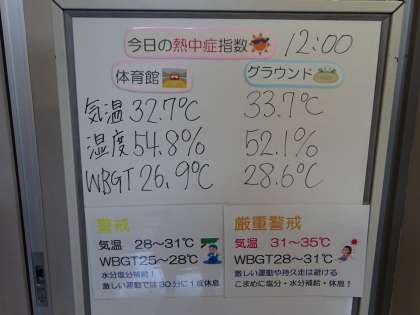 今日の熱中症指数 12:00
体育館 グラウンド
気温 32.7℃ 33.7℃
湿度 54.8% 52.1%
WBGT 26.9℃ 28.6℃
警戒
気温 28～31℃
WBGT25～28℃
水分塩分補給！
激しい運動では30分に1度休息
厳重警戒
気温 31～35℃
WBGT28～31℃
激しい運動や持久走は避ける
こまめに塩分・水分補給・休息！